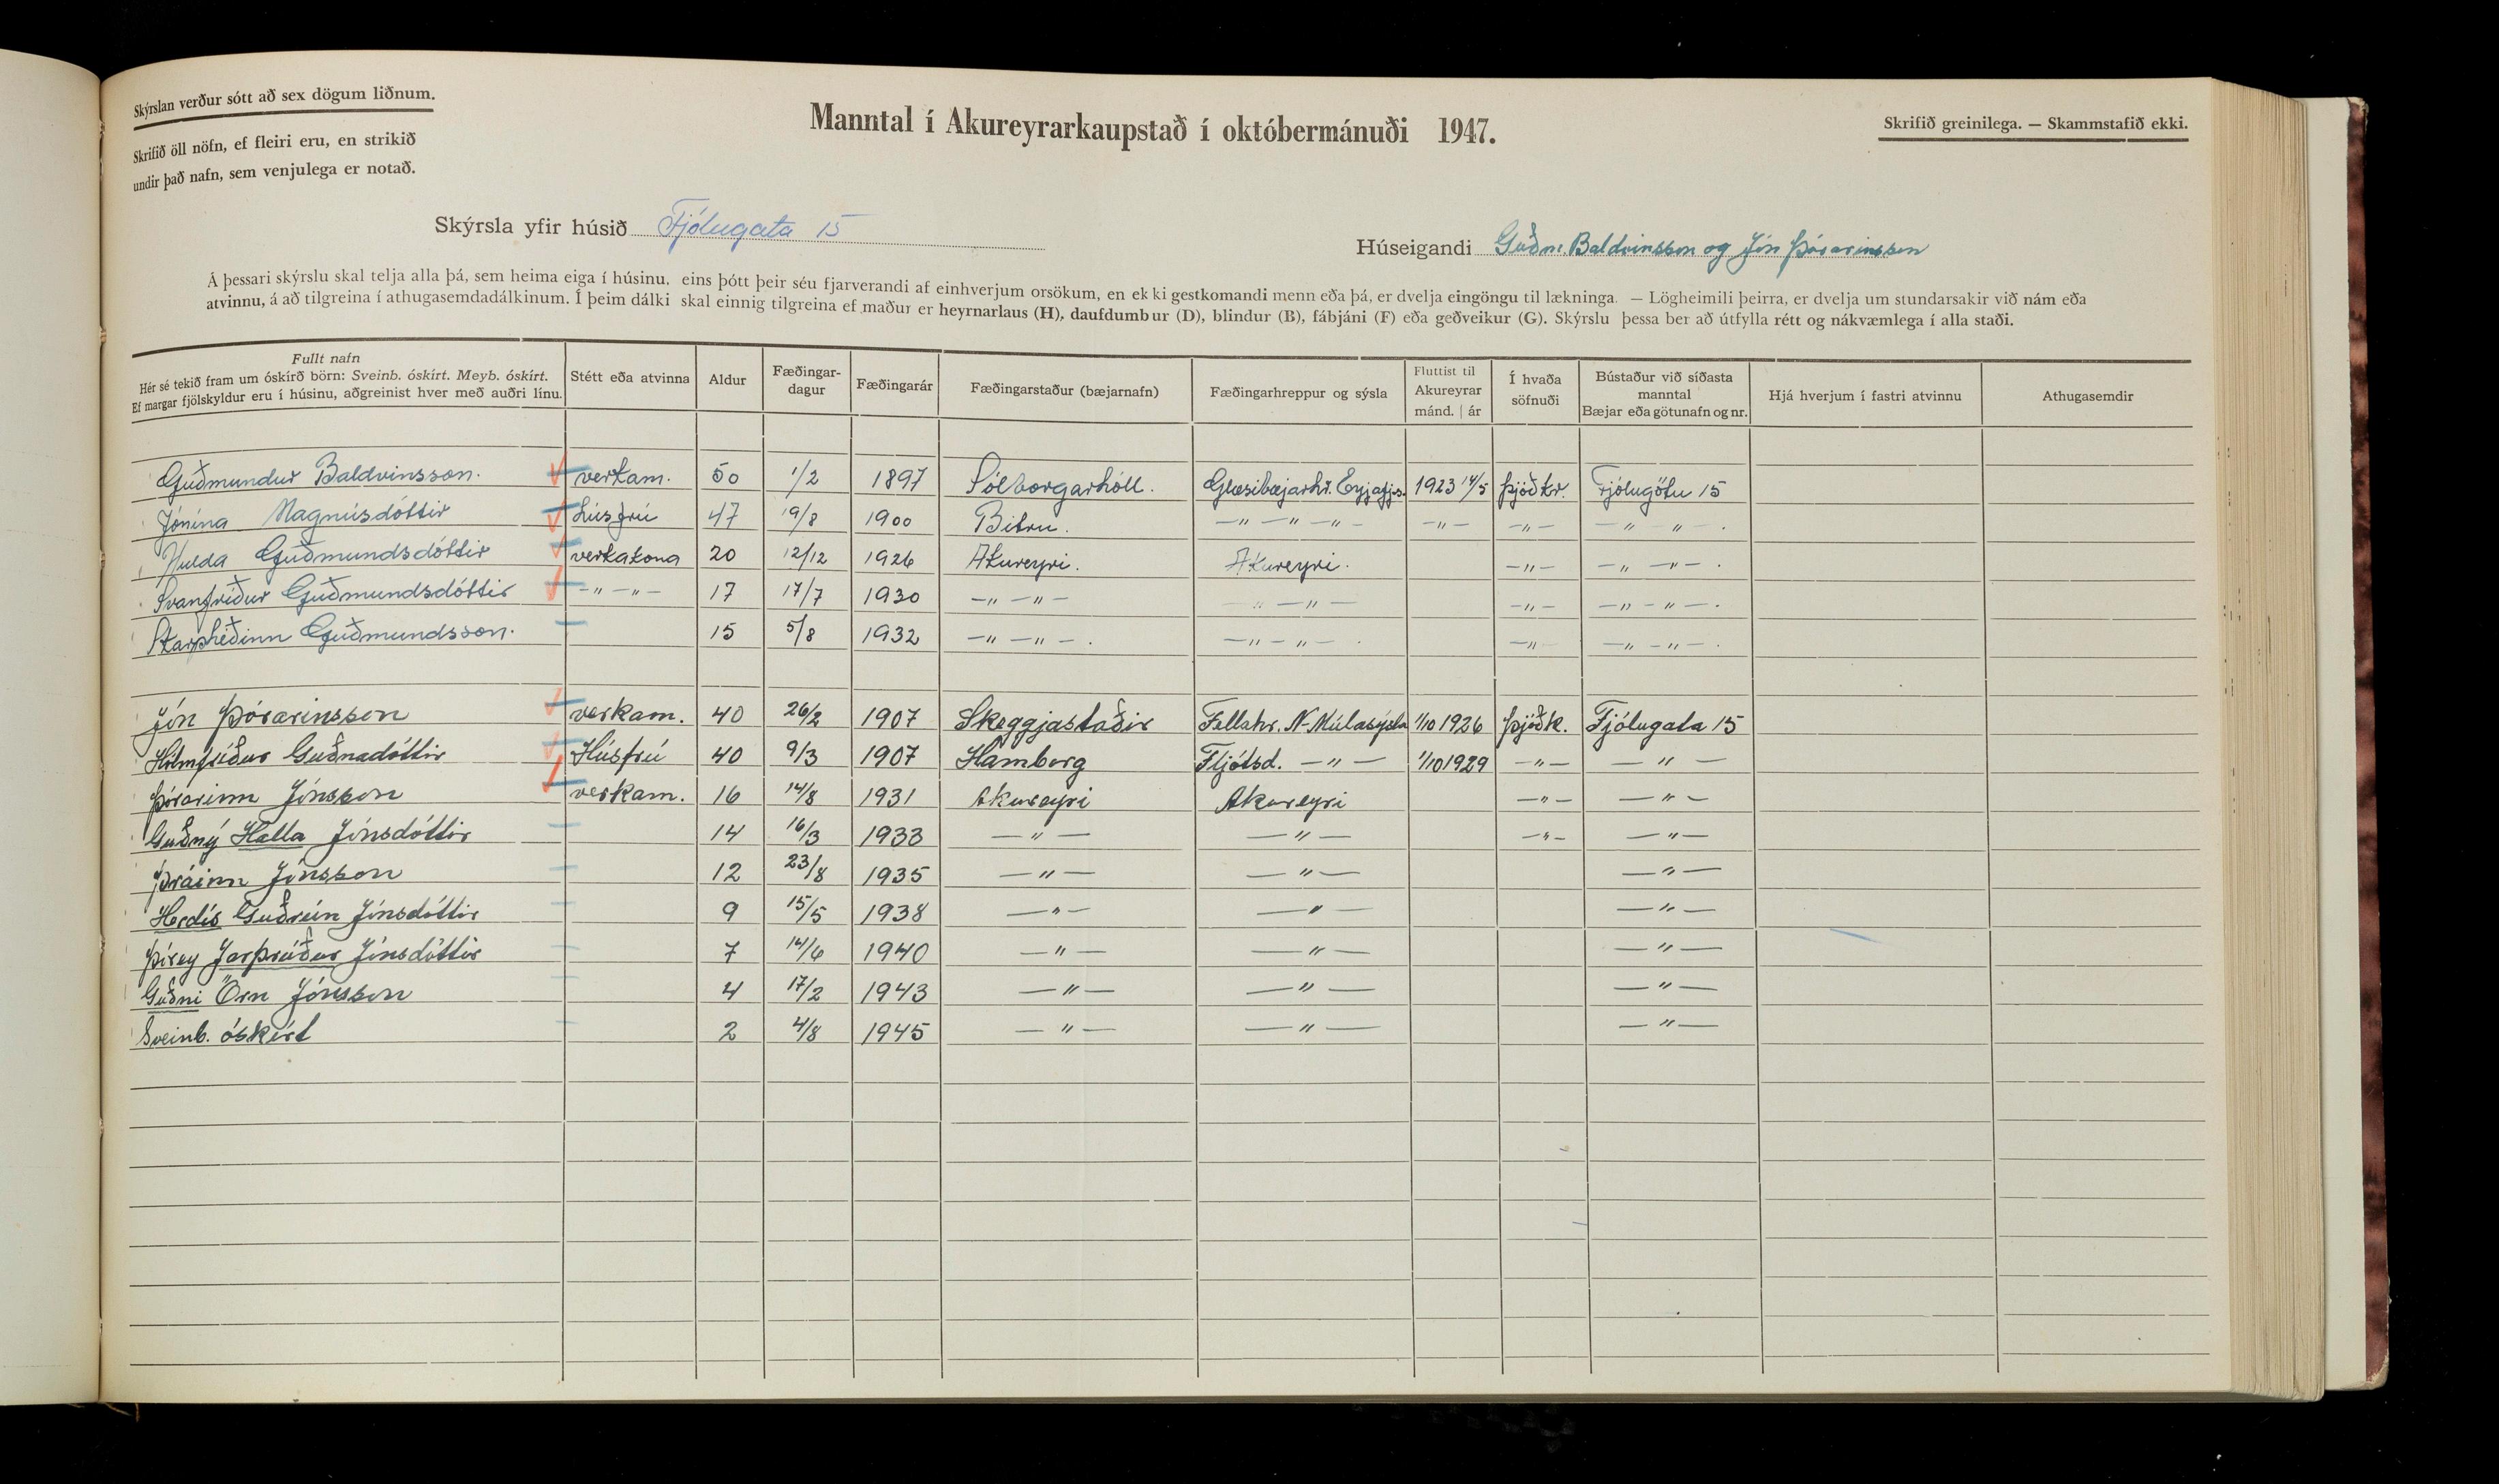 Skýrslan verður sótt að sex dögum liðnum.
Skrifið öll nöfn, ef fleiri eru, en strikið
undir það nafn, sem venjulega er notað.
Manntal í Akureyrarkaupstað í októbermánuði 1947.
Skrifið greinilega. — Skammstafið ekki.
Skýrsla yfir húsið Fjólugata 15
Húseigandi Guðm. Baldvinsson og Jón Þórarinsson
Á þessari skýrslu skal telja alla þá, sem heima eiga í húsinu, eins þótt þeir séu fjarverandi af einhverjum orsökum, en ekki gestkomandi menn eða þá, er dvelja eingöngu til lækninga. — Lögheimili þeirra, er dvelja um stundarsakir við nám eða
atvinnu, á að tilgreina í athugasemdadálkinum. Í þeim dálki skal einnig tilgreina ef maður er heyrnarlaus (H), daufdumbur (D), blindur (B), fábjáni (F) eða geðveikur (G). Skýrslu þessa ber að útfylla rétt og nákvæmlega í alla staði.
Fullt nafn
Hér sé tekið fram um óskírð börn: Sveinb. óskírt. Meyb. óskírt.
Ef margar fjölskyldur eru í húsinu, aðgreinist hver með auðri línu.
Stétt eða atvinna
Aldur
Fæðingar-
dagur
Fæðingarár
Fæðingarstaður (bæjarnafn)
Fæðingarhreppur og sýsla
Fluttist til
Akureyrar
mánd. | ár
Í hvaða
söfnuði
Bústaður við síðasta
manntal
Bæjar eða götunafn og nr.
Hjá hverjum í fastri atvinnu
Athugasemdir
Guðmundur Baldvinsson. verkam. 50 1/2 1897 Sólborgarhóll. Glæsibæjarhr. Eyjafjs. 1923 14/5 Þjóðkr. Fjólugötu 15
Jónína Magnúsdóttir húsfrú 47 19/8 1900 Bitru. —"—"—"— —"— —"— —"—"—.
Hulda Guðmundsdóttir verkakona 20 12/12 1926 Akureyri. Akureyri. —"— —"—"—.
Svanfríður Guðmundsdóttir —"—"— 17 17/7 1930 —"—"— "—"— —"— —"—"—.
Skarphéðinn Guðmundsson. 15 5/8 1932 —"—"—. —"—"—. —"— —"—"—.
Jón Þórarinsson verkam. 40 26/2 1907 Skeggjastaðir Fellahr. N-Múlasýsla 1/10 1926 Þjóðk. Fjólugata 15
Hólmfríður Guðnadóttir Húsfrú 40 9/3 1907 Hamborg Fljótsd. —"— 1/10 1929 —"— —"—
Þórarinn Jónsson verkam. 16 14/8 1931 Akureyri Akureyri —"— —"—
Guðný Halla Jónsdóttir 14 16/3 1933 —"— —"— —"— —"—
Þráinn Jónsson 12 23/8 1935 —"— —"— —"—
Herdís Guðrún Jónsdóttir 9 15/5 1938 —"— —"— —"—
Þórey Jarþrúður Jónsdóttir 7 14/6 1940 —"— —"— —"—
Guðni Örn Jónsson 4 17/2 1943 —"— —"— —"—
Sveinb. óskírt 2 4/8 1945 —"— —"— —"—